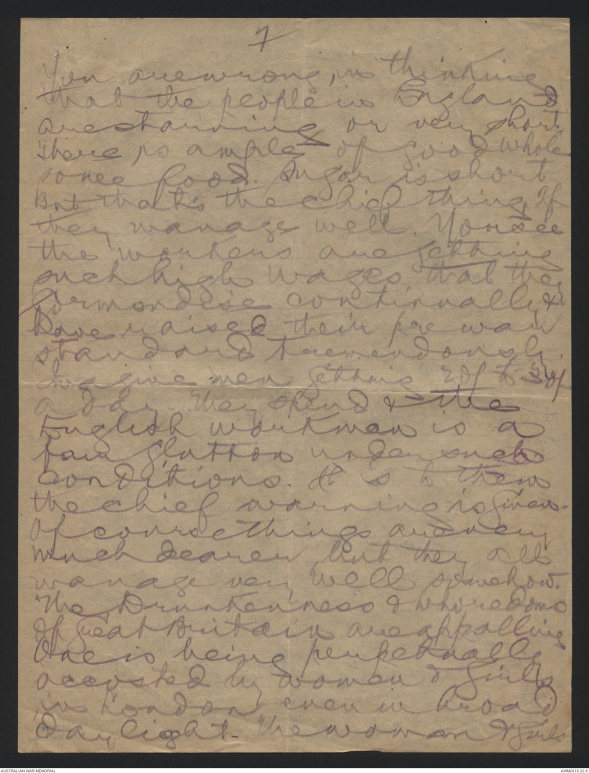 7
You are wrong, in thinking
that the people in England
are starving or very short.
There is ample of good whole
some food. Sugar is short
But that's the chief thing. If
they manage well. You see
the workers are getting
such high wages that they
gormandise continually &
have raised their pre war
standard tremendously.
Imagine men getting 20/- to 30/-
a day. They spend & the
English workman is a
fair glutton under such
conditions. It is to them
the chief warning is given.
Of course things are very
much dearer, but they all
manage very well somehow.
The Drunkenness & whoredoms
of Great Britain are appalling
One is being perpetually
accosted by women & girls
in London even in broad
Daylight. The women & girls
AUSTRALIAN WAR MEMORIAL
AWM2019.22.6